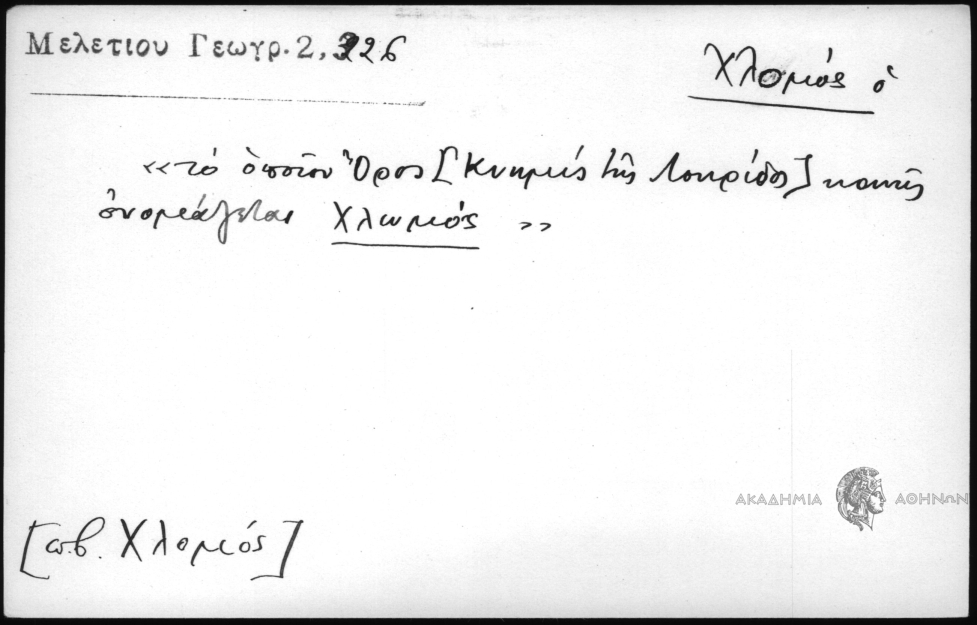 Μελετιου Γεωγρ. 2, 326
Χλομός ὁ
«τό ὁποῖον Ὄρος [Κνημίς τῆς Λοκρίδος] κοινῶς
ὀνομάζεται Χλωμός »
ΑΚΑΔΗΜΙΑ ΑΘΗΝΩΝ
[ Χλομός]